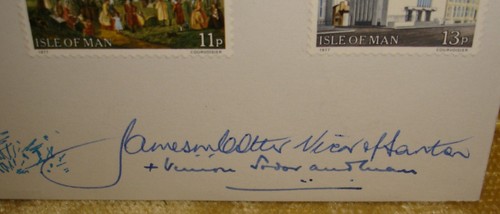 ISLE OF MAN
1977 COURVOISIER
11P
ISLE OF MAN
1977 COURVOISIER
13P
Vicar of Santon
+ Vernon Sodor and Man